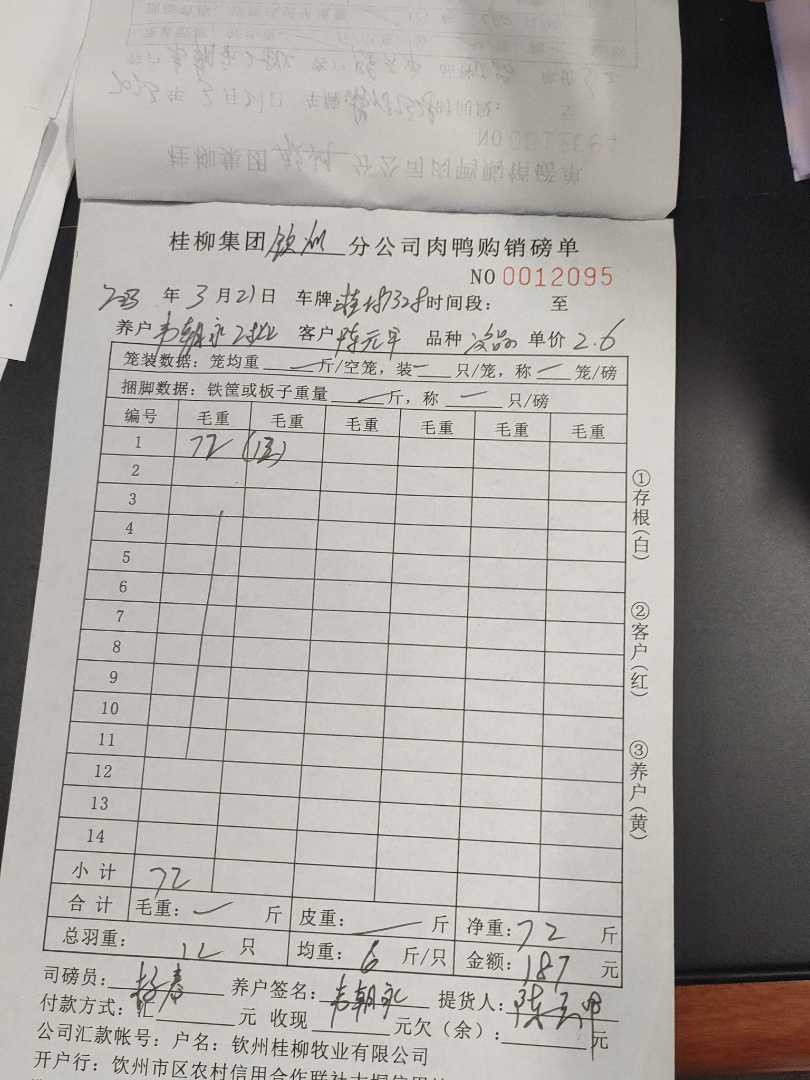 桂柳集团钦州分公司肉鸭购销磅单
NO 0012095
年3月21日 车牌 7328时间段: 至
养户韦朝永 客户陈元平 品种 单价2.6
笼装数据:笼均重 斤/空笼,装 只/笼,称 笼/磅
捆脚数据:铁筐或板子重量 斤,称 只/磅
编号 毛重 毛重 毛重 毛重 毛重 毛重
1 72 (12)
2
3
4
5
6
7
8
9
10
11
12
13
14
小计 72
合计 毛重: 斤 皮重: 斤 净重:72 斤
总羽重: 12 只 均重: 6 斤/只 金额:187 元
司磅员: 养户签名:韦朝永 提货人:陈
付款方式:汇 元 收现 元欠(余): 元
公司汇款帐号:户名:钦州桂柳牧业有限公司
开户行:钦州市区农村信用合作联社
①存根(白)
②客户(红)
③养户(黄)